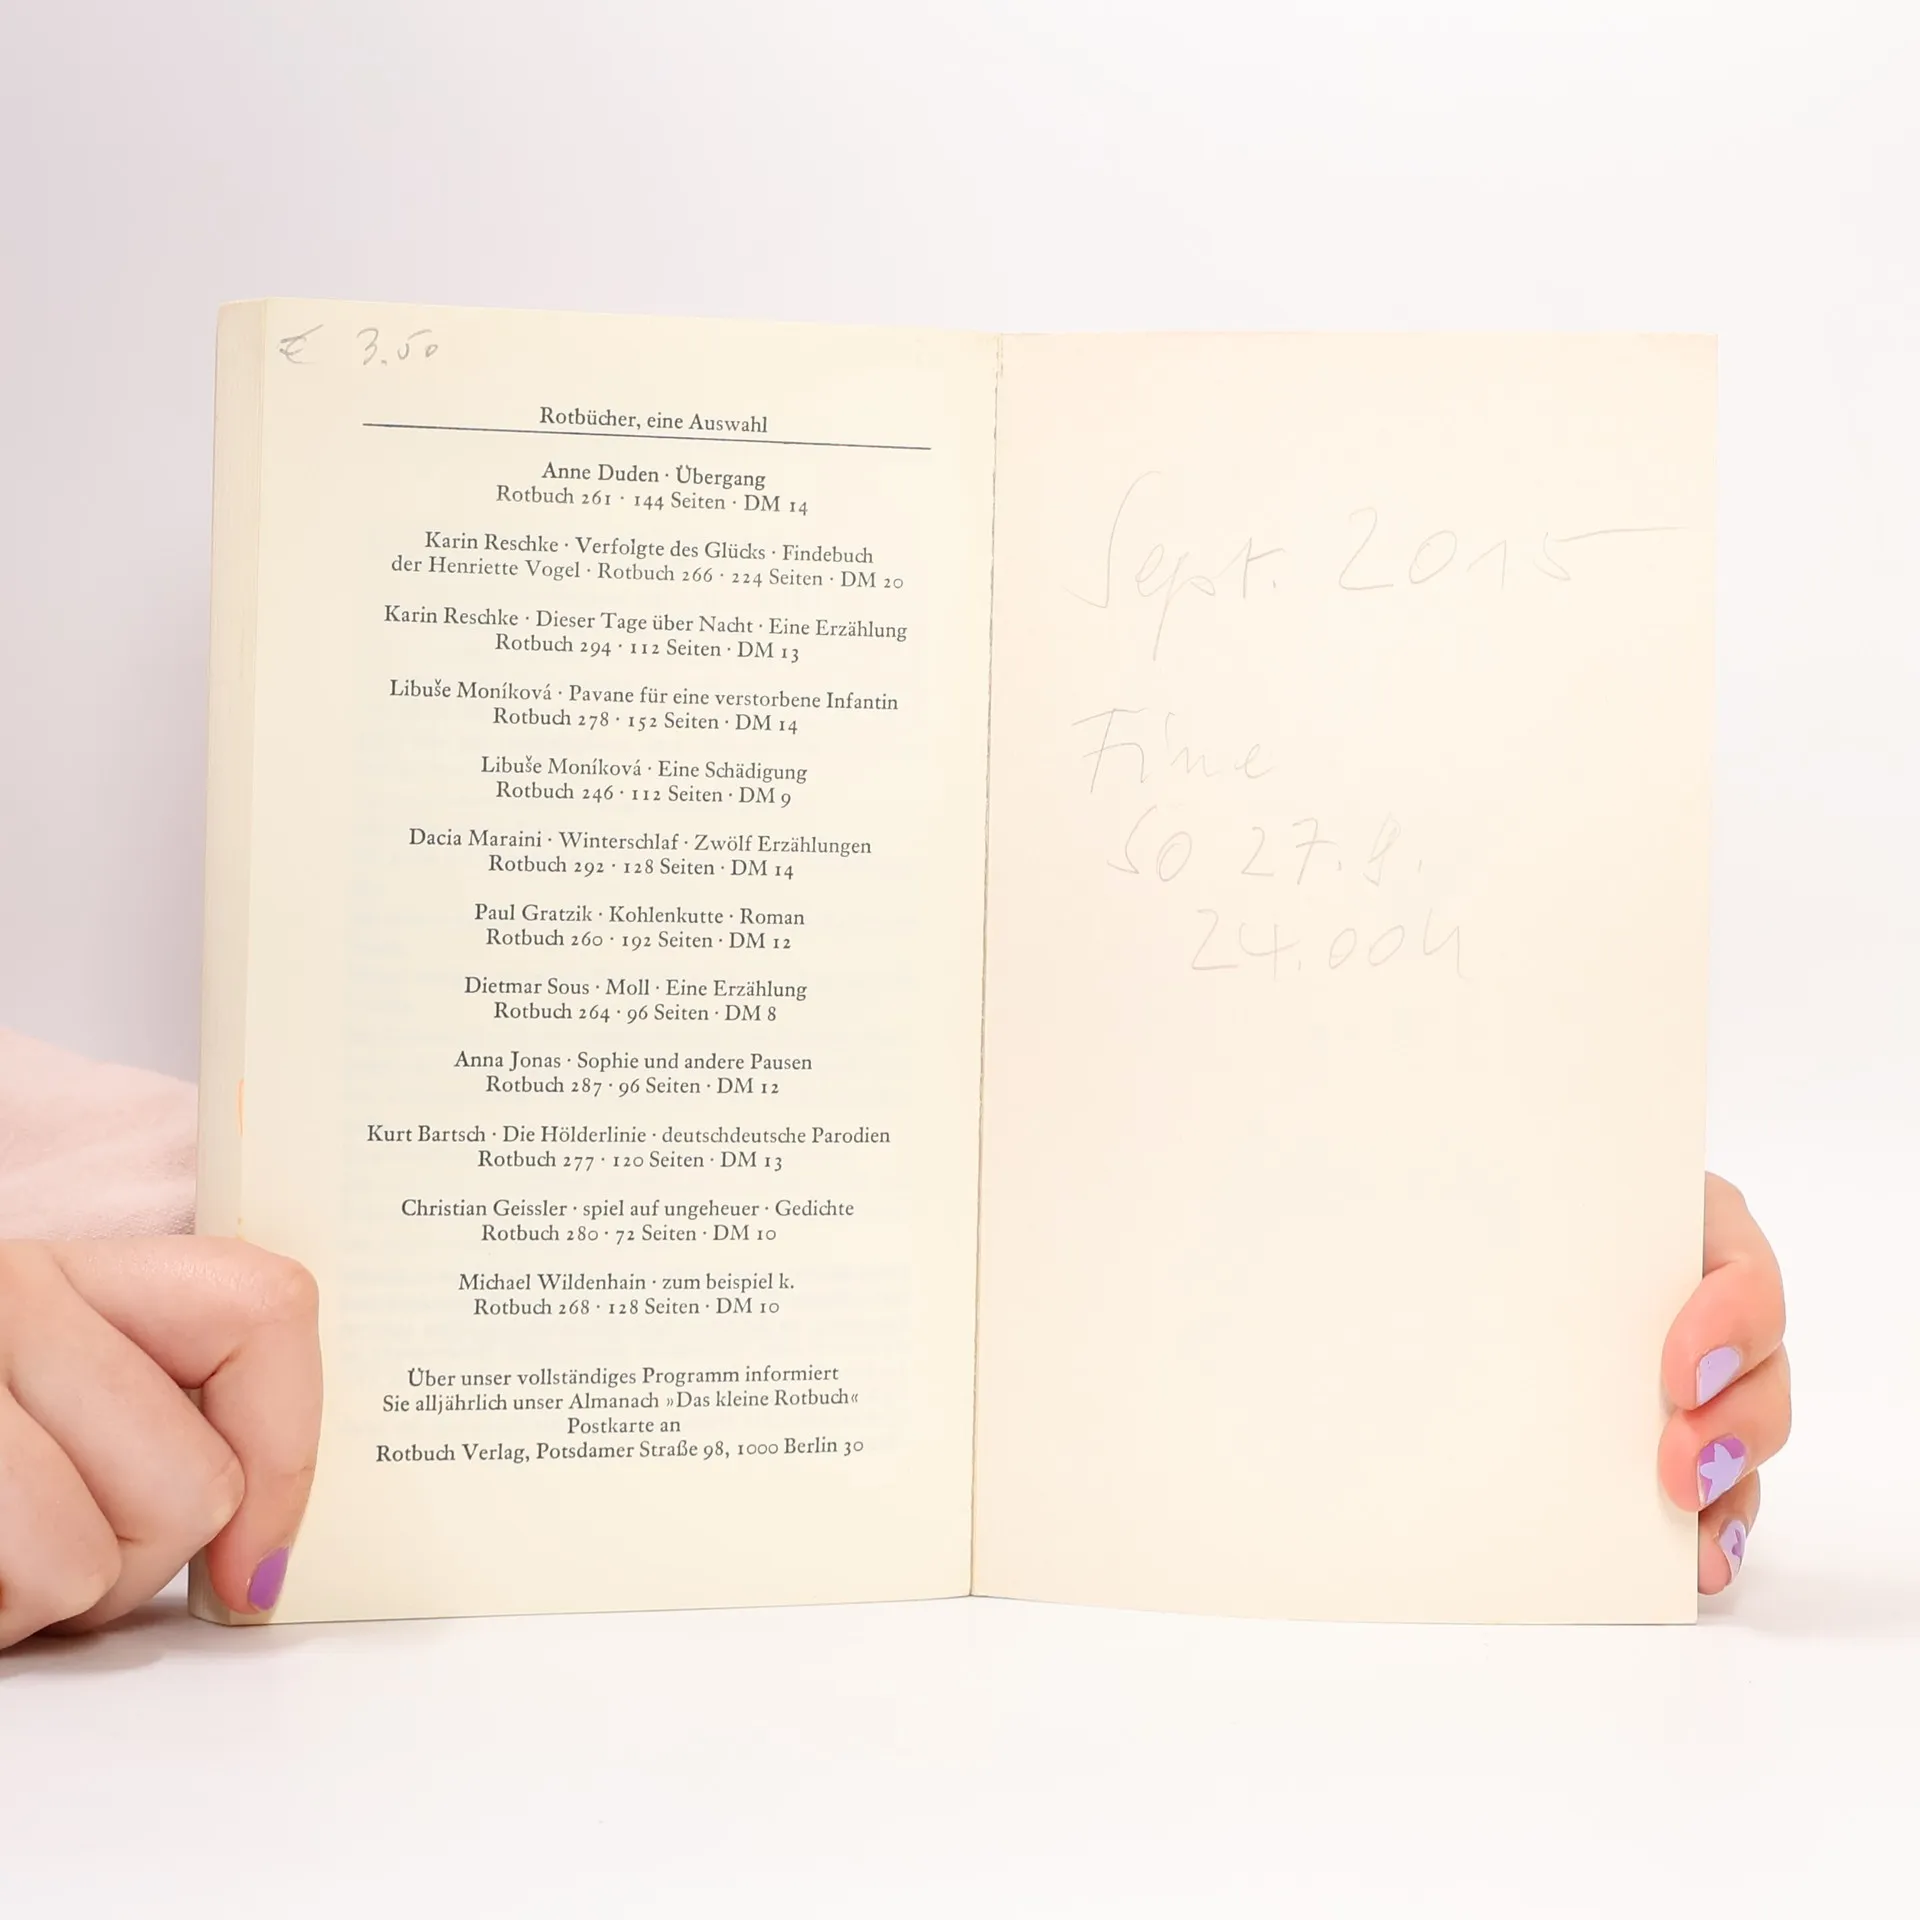 € 3.50
Rotbücher, eine Auswahl
Anne Duden · Übergang
Rotbuch 261 · 144 Seiten · DM 14
Karin Reschke · Verfolgte des Glücks · Findebuch
der Henriette Vogel · Rotbuch 266 · 224 Seiten · DM 20
Karin Reschke · Dieser Tage über Nacht · Eine Erzählung
Rotbuch 294 · 112 Seiten · DM 13
Libuše Moníková · Pavane für eine verstorbene Infantin
Rotbuch 278 · 152 Seiten · DM 14
Libuše Moníková · Eine Schädigung
Rotbuch 246 · 112 Seiten · DM 9
Dacia Maraini · Winterschlaf · Zwölf Erzählungen
Rotbuch 292 · 128 Seiten · DM 14
Paul Gratzik · Kohlenkutte · Roman
Rotbuch 260 · 192 Seiten · DM 12
Dietmar Sous · Moll · Eine Erzählung
Rotbuch 264 · 96 Seiten · DM 8
Anna Jonas · Sophie und andere Pausen
Rotbuch 287 · 96 Seiten · DM 12
Kurt Bartsch · Die Hölderlinie · deutschdeutsche Parodien
Rotbuch 277 · 120 Seiten · DM 13
Christian Geissler · spiel auf ungeheuer · Gedichte
Rotbuch 280 · 72 Seiten · DM 10
Michael Wildenhain · zum beispiel k.
Rotbuch 268 · 128 Seiten · DM 10
Über unser vollständiges Programm informiert
Sie alljährlich unser Almanach »Das kleine Rotbuch«
Postkarte an
Rotbuch Verlag, Potsdamer Straße 98, 1000 Berlin 30
Sept. 2015
Fine
So 27.9.
24.00h